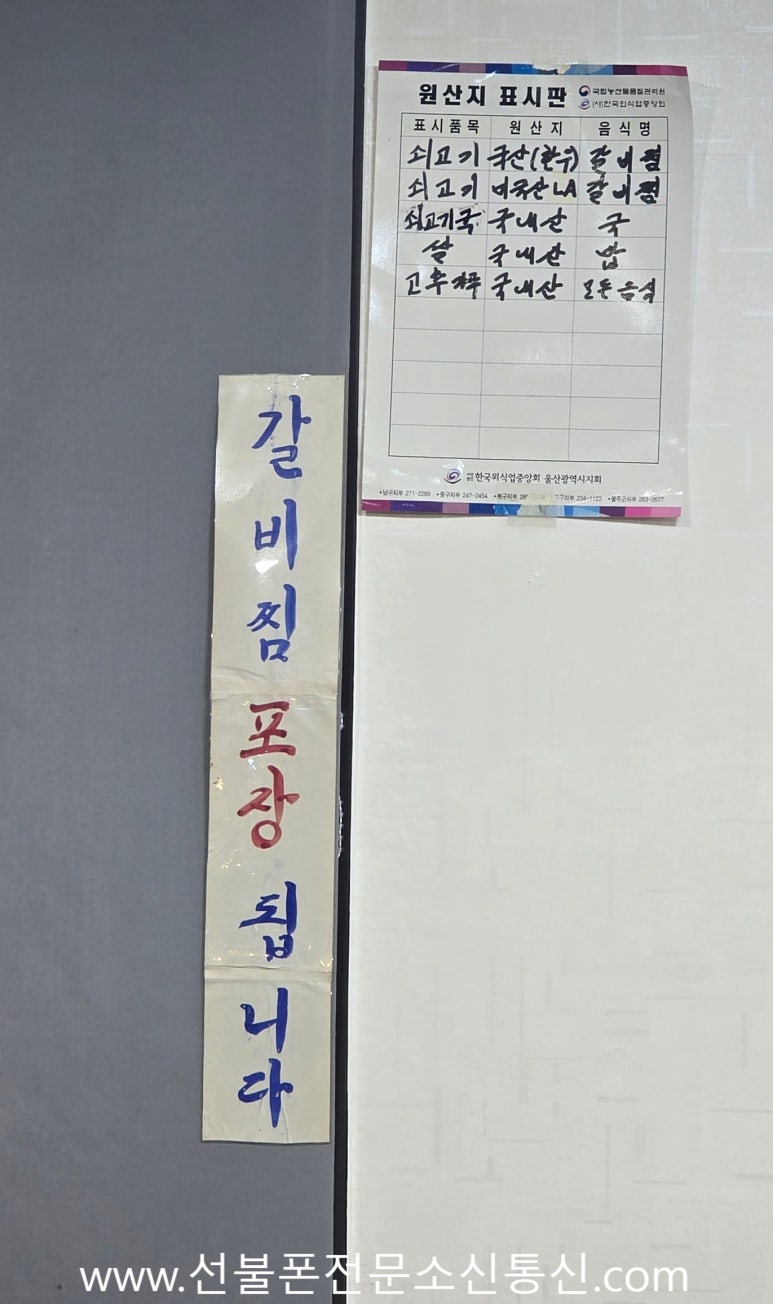 원산지 표시판
국립농산물품질관리원
(사)한국외식업중앙회
표시품목 원산지 음식명
쇠고기 국산(한우) 갈비찜
쇠고기 미국산 LA 갈비찜
쇠고기국 국내산 국
쌀 국내산 밥
고추가루 국내산 모든음식
한국외식업중앙회 울산광역시지회
•남구지부 271-2289 •중구지부 247-2454 •북구지부 234-1123 •울주군지부 263-2677
갈비찜 포장 됩니다
www.선불폰전문소신통신.com